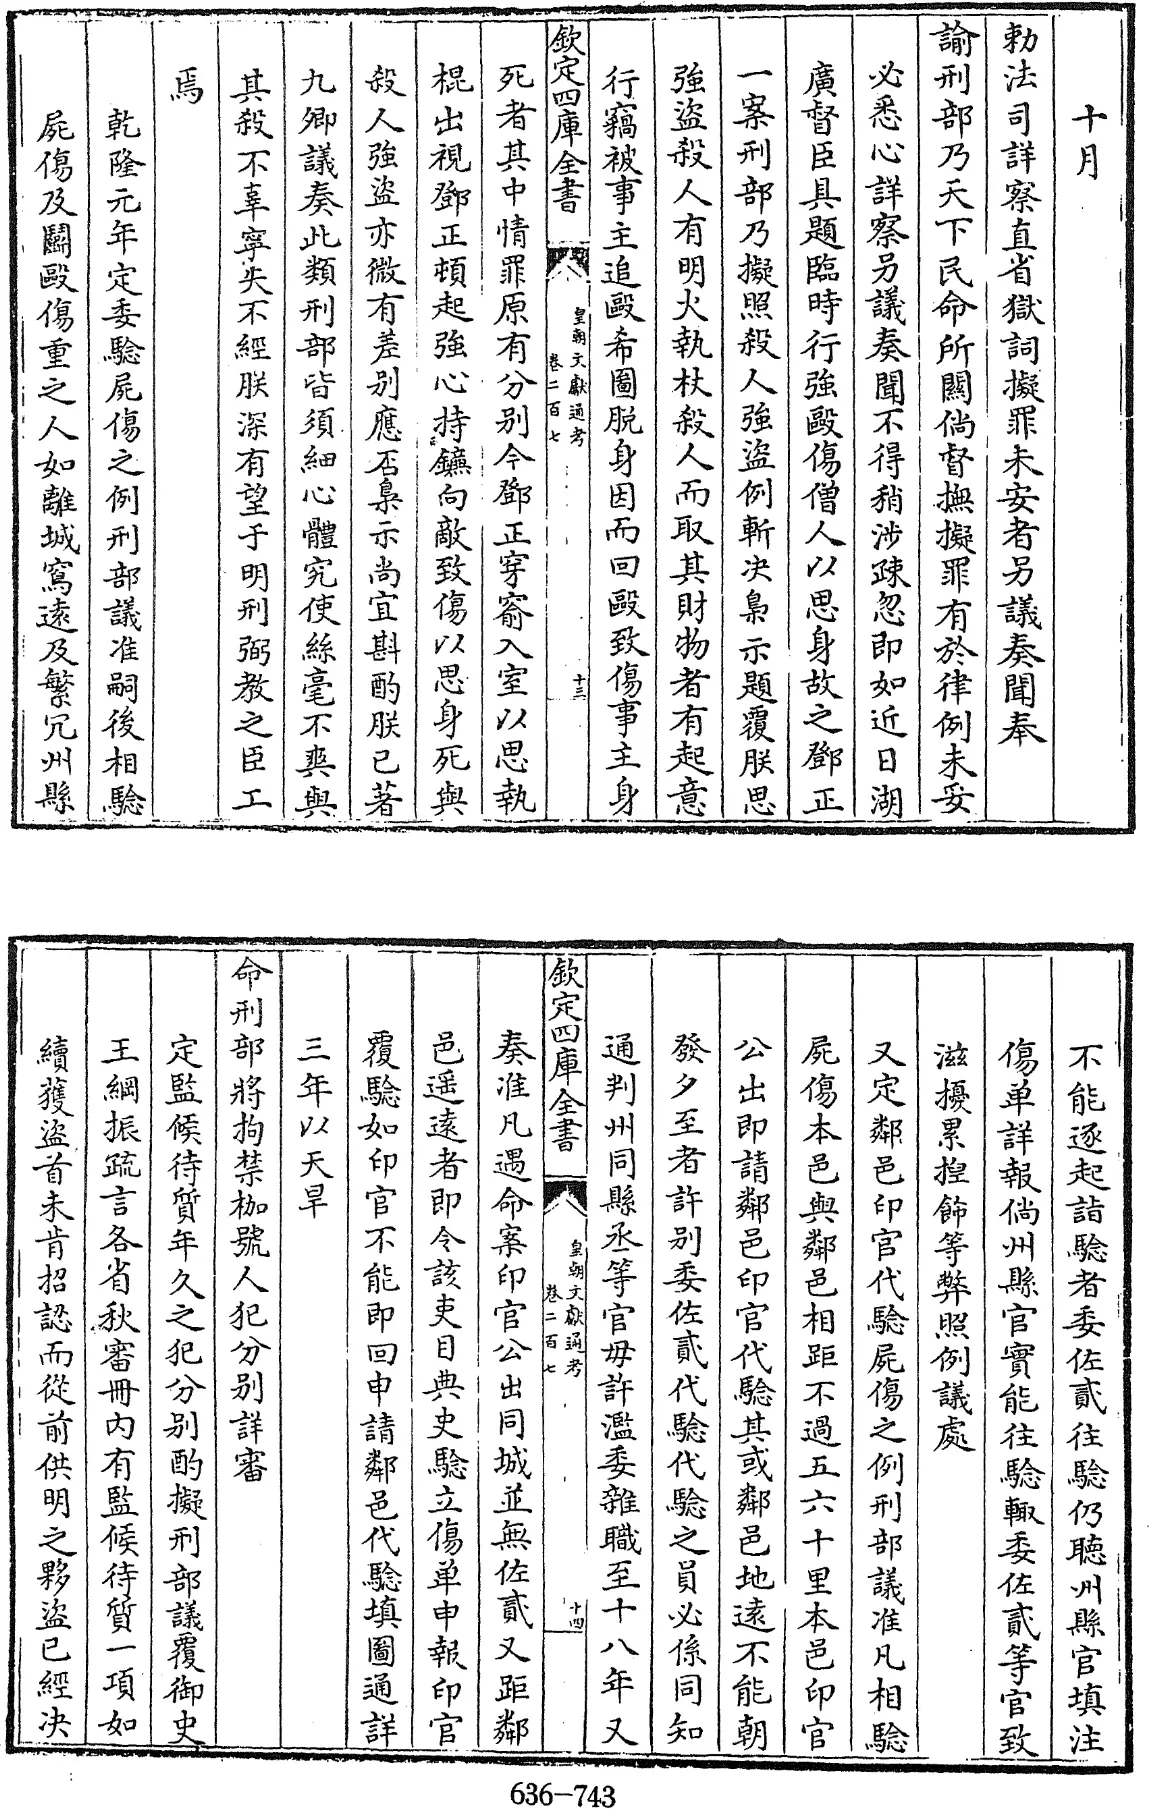 十月
勅法司詳察直省獄詞擬罪未安者另議奏聞奉
諭刑部乃天下民命所關倘督撫擬罪有於律例未妥
必悉心詳察另議奏聞不得稍涉疎忽即如近日湖
廣督臣具題臨時行強毆傷僧人以思身故之鄧正
一案刑部乃擬照殺人強盜例斬决梟示題覆朕思
強盜殺人有明火執杖殺人而取其財物者有起意
行竊被事主追毆希圖脱身因而回毆致傷事主身
欽定四庫全書
皇朝文獻通考
卷二百七
十三
死者其中情罪原有分别今鄧正穿窬入室以思執
棍出視鄧正頓起強心持鐮向敵致傷以思身死與
殺人強盜亦微有差别應否梟示尚宜斟酌朕已著
九卿議奏此類刑部皆須細心體究使絲毫不爽與
其殺不辜寧失不經朕深有望于明刑弼教之臣工
焉
乾隆元年定委驗屍傷之例刑部議准嗣後相驗
屍傷及鬭毆傷重之人如離城寫遠及繁冗州縣
不能逐起詣驗者委佐貳往驗仍聴州縣官填注
傷单詳報倘州縣官實能往驗輙委佐貳等官致
滋擾累揑飾等弊照例議處
又定鄰邑印官代驗屍傷之例刑部議准凡相驗
屍傷本邑與鄰邑相距不過五六十里本邑印官
公出即請鄰邑印官代驗其或鄰邑地遠不能朝
發夕至者許别委佐貳代驗代驗之員必係同知
通判州同縣丞等官毋許濫委雜職至十八年又
欽定四庫全書
皇朝文獻通考
卷二百七
十四
奏准凡遇命案印官公出同城並無佐貳又距鄰
邑遥遠者即令該吏目典史驗立傷单申報印官
覆驗如印官不能即回申請鄰邑代驗填圖通詳
三年以天旱
命刑部將拘禁枷號人犯分别詳審
定監候待質年久之犯分别酌擬刑部議覆御史
王綱振疏言各省秋審冊内有監候待質一項如
續獲盜首未肯招認而從前供明之夥盜已經决
636-743